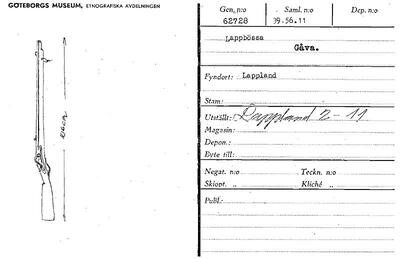 GÖTEBORGS MUSEUM, ETNOGRAFISKA AVDELNINGEN
Gen. n:o Saml. n:o Dep. n:o
62728 39.56.11
Lappbössa
Gåva.
Fyndort: Lappland
Stam:
Utställt: Lappland 2-11
Magasin:
Depon.:
Byte till:
Negat. n:o Teckn. n:o
Skiopt. „ Kliché „
Publ.